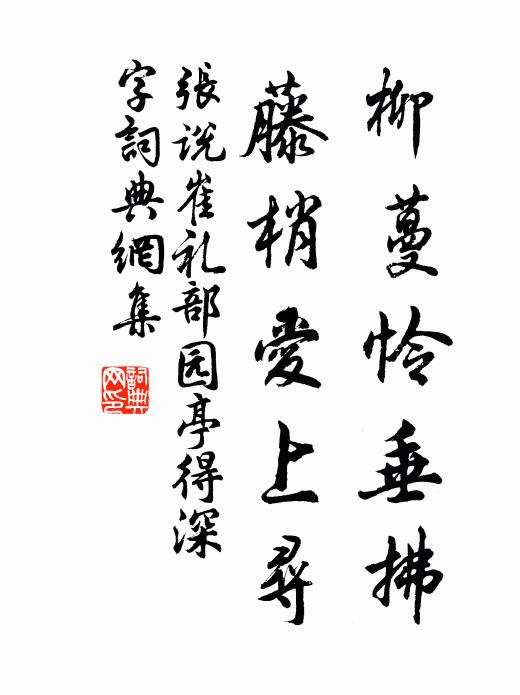 柳蔓怜垂拂
藤梢愛上尋
張说崔礼部园亭得深
字詞典網集
詞典网印